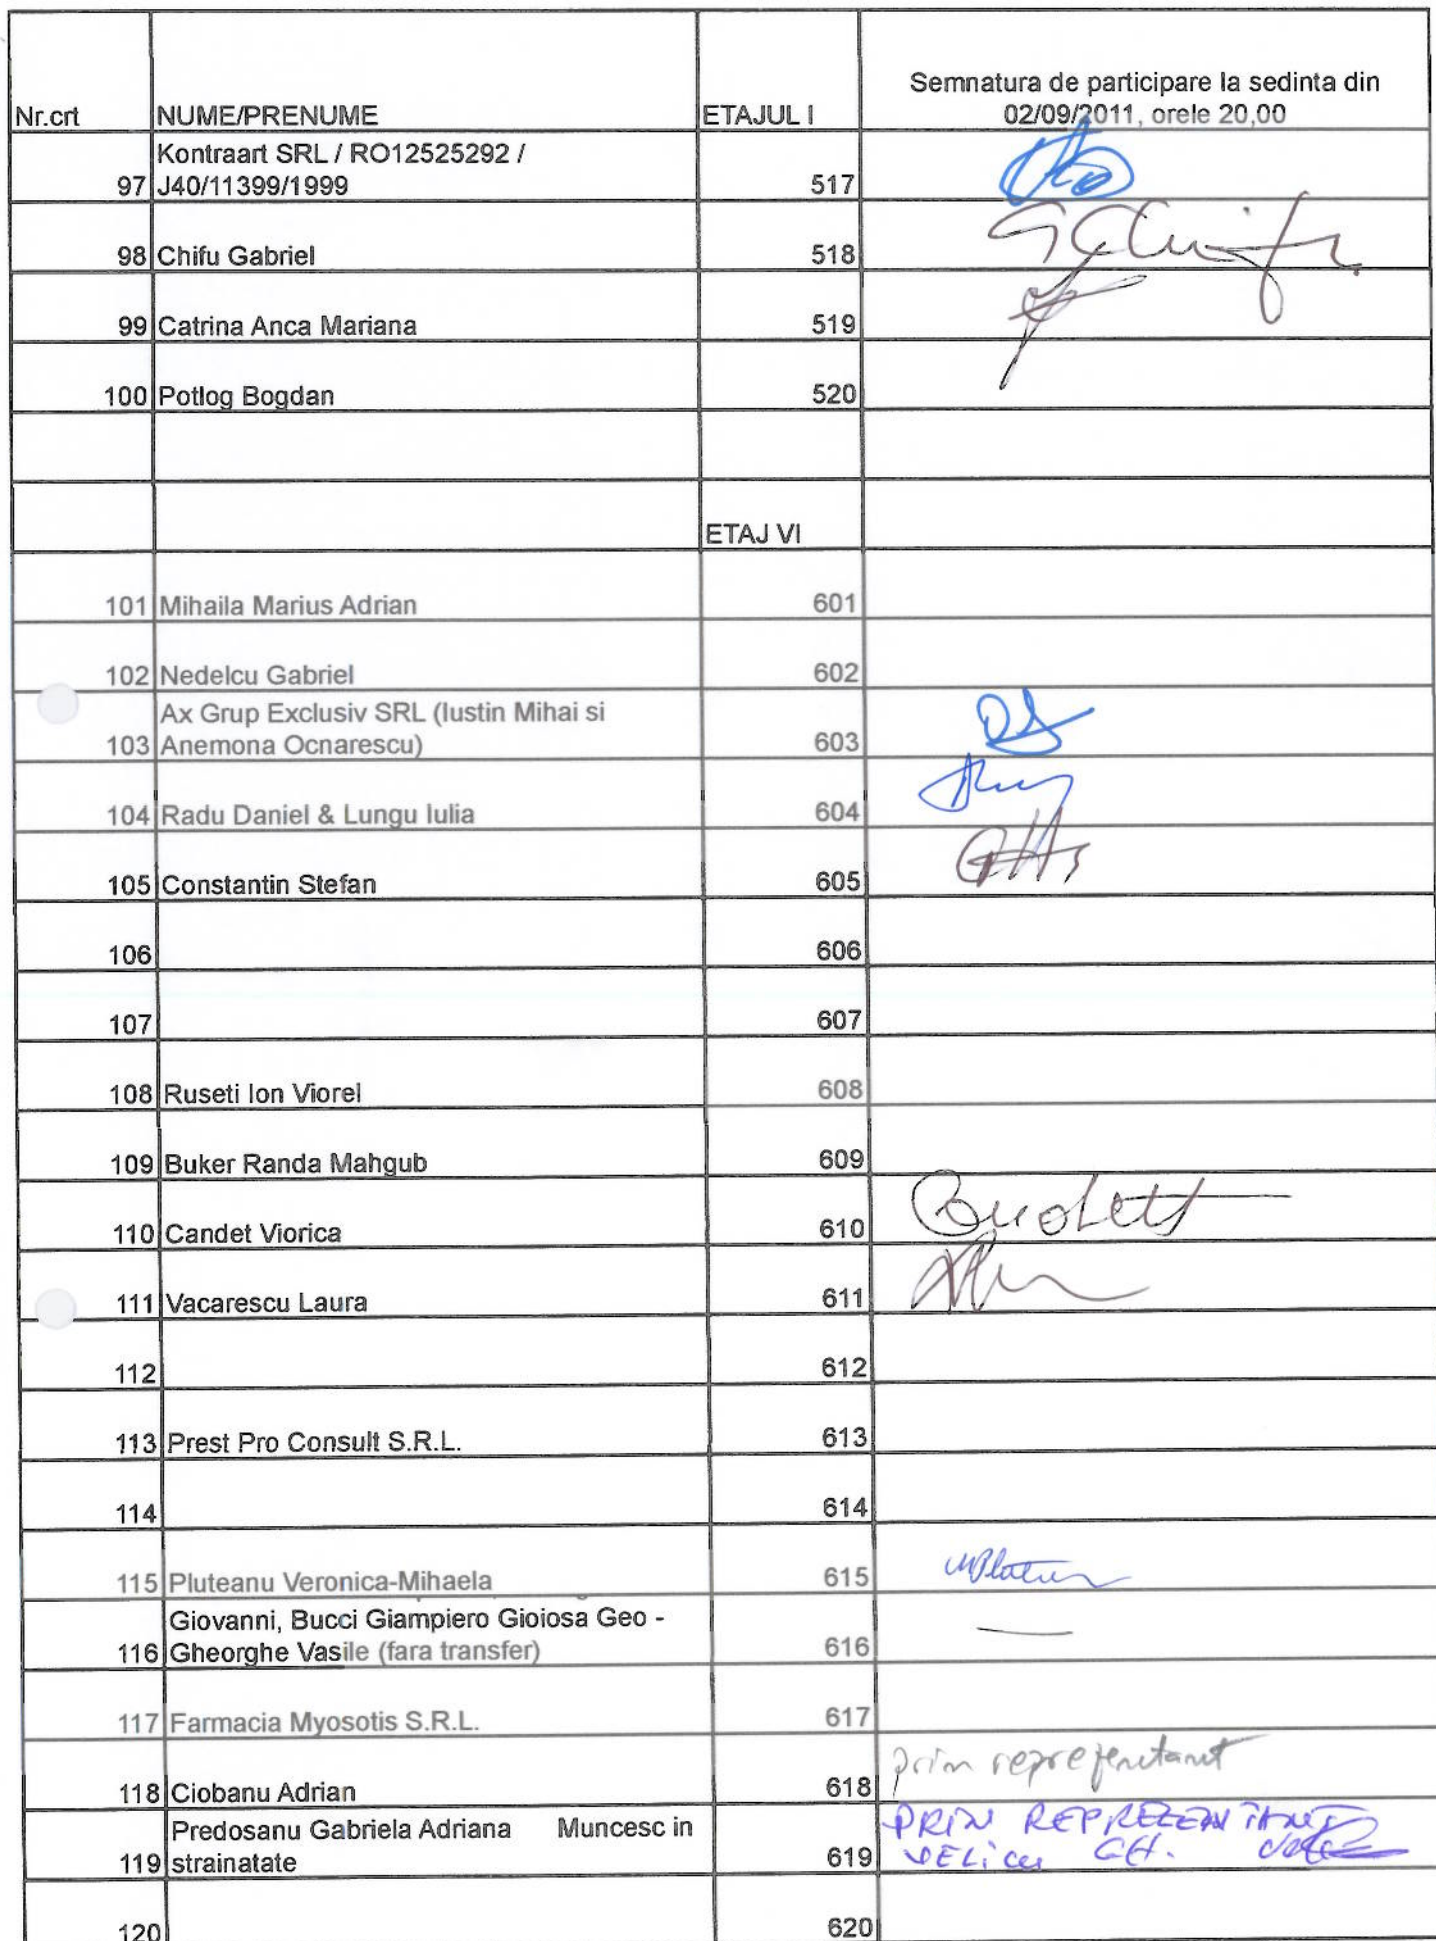 Nr.crt NUME/PRENUME ETAJUL I Semnatura de participare la sedinta din
02/09/2011, orele 20,00
Kontraart SRL / RO12525292 /
97 J40/11399/1999 517
98 Chifu Gabriel 518
99 Catrina Anca Mariana 519
100 Potlog Bogdan 520
ETAJ VI
101 Mihaila Marius Adrian 601
102 Nedelcu Gabriel 602
Ax Grup Exclusiv SRL (Iustin Mihai si
103 Anemona Ocnarescu) 603
104 Radu Daniel & Lungu Iulia 604
105 Constantin Stefan 605
106 606
107 607
108 Ruseti Ion Viorel 608
109 Buker Randa Mahgub 609
110 Candet Viorica 610
111 Vacarescu Laura 611
112 612
113 Prest Pro Consult S.R.L. 613
114 614
115 Pluteanu Veronica-Mihaela 615
Giovanni, Bucci Giampiero Gioiosa Geo -
116 Gheorghe Vasile (fara transfer) 616
117 Farmacia Myosotis S.R.L. 617
118 Ciobanu Adrian 618 prin reprezentant
Predosanu Gabriela Adriana Muncesc in PRIN REPREZENTANT
119 strainatate 619 VELicu GH.
120 620